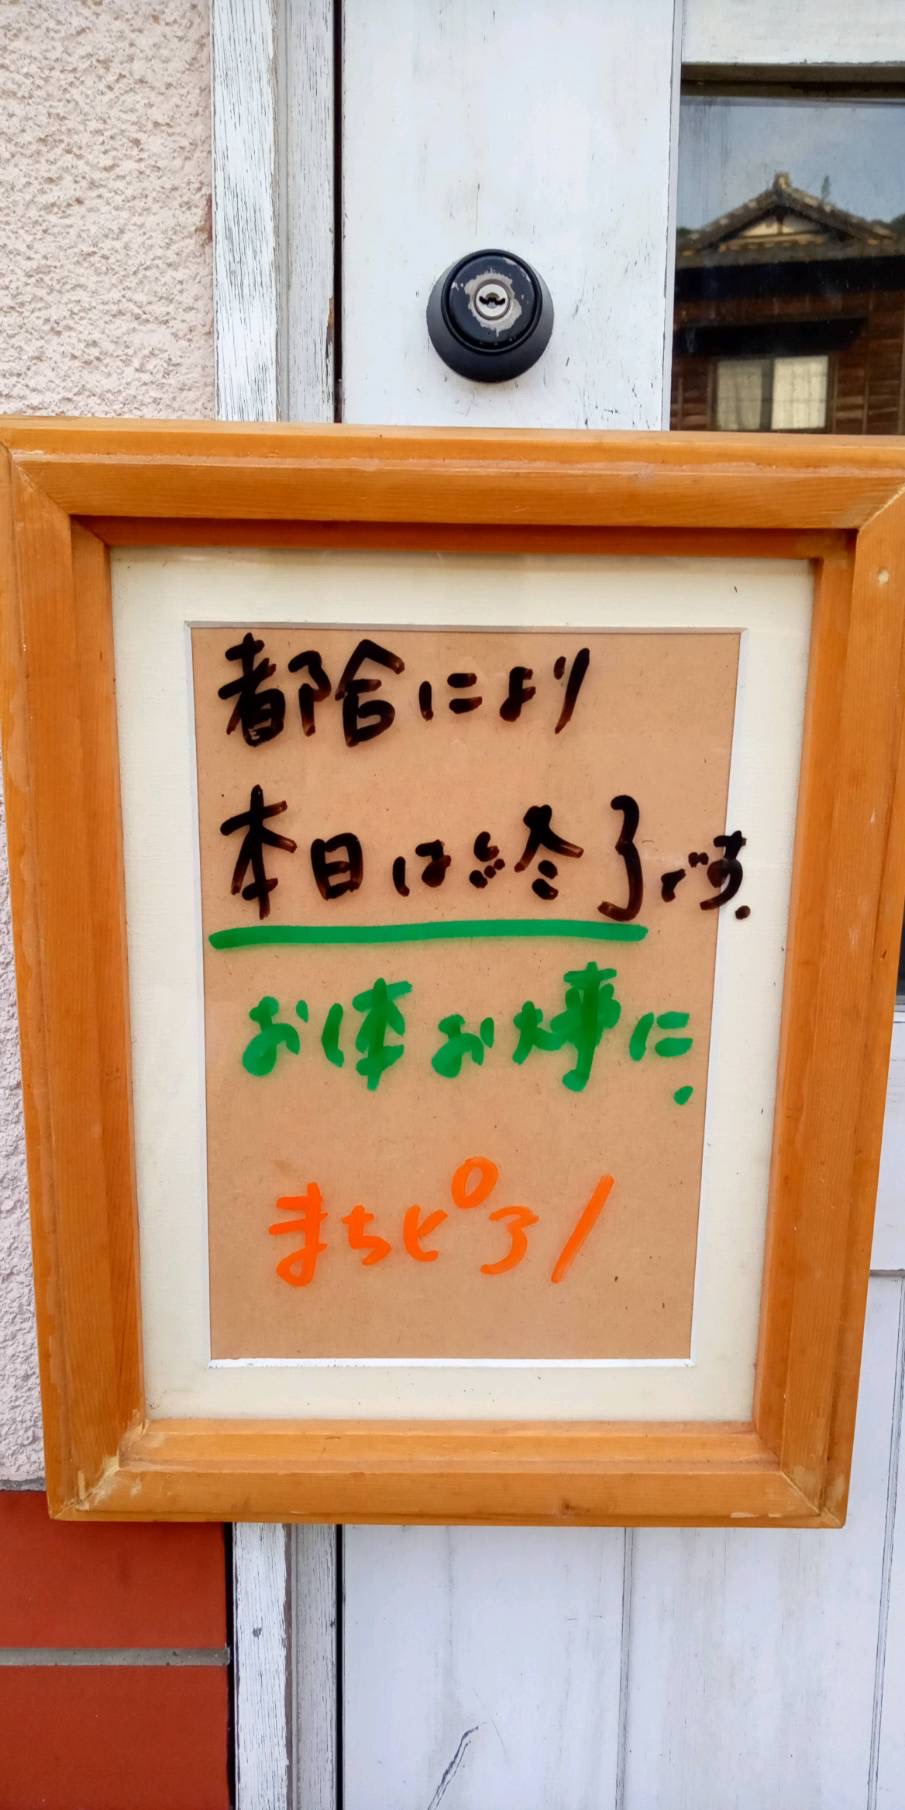 都合により
本日は終了です.
お体お大事に.
まちピアノ